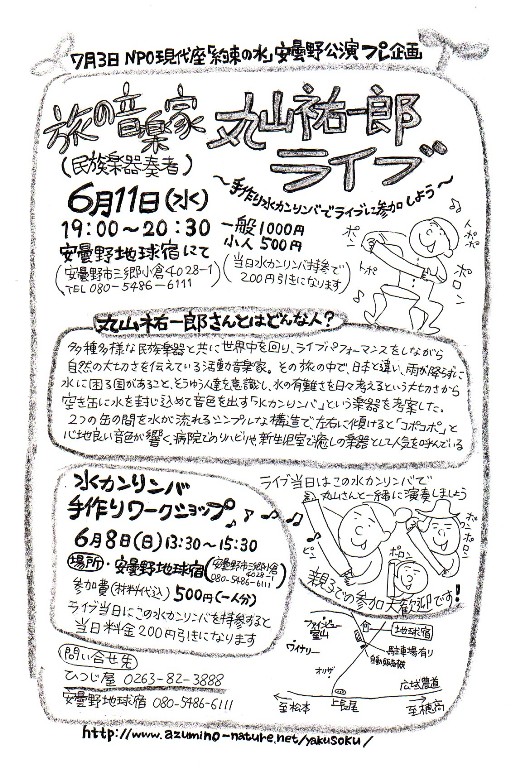 7月3日 NPO現代座「約束の水」安曇野公演プレ企画
旅の音楽家 丸山祐一郎
(民族楽器奏者) ライブ
〜手作り水カンリンバでライブに参加しよう〜
6月11日(水)
19:00〜20:30 一般1000円
小人500円
安曇野地球宿にて
(安曇野市三郷小倉4028-1)
TEL 080-5486-6111
(当日水カンリンバ持参で
200円引きになります)
ポン
トポ
トポポ
ポロン
丸山祐一郎さんとはどんな人?
多種多様な民族楽器と共に世界中を回り、ライブパフォーマンスをしながら
自然の大切さを伝えている活動の音楽家。その旅の中で、日本と違い、雨が降らずに
水に困る国があること、そうゆう人達を意識し、水の有難さを日々考えるという大切さから
空き缶に水を封じ込めて音色を出す「水カンリンバ」という楽器を考案した。
2つの缶の間を水が流れるシンプルな構造で、左右に傾けると「コポコポ」と
心地良い音色が響く。病院でのリハビリや新生児室で癒しの楽器として人気を呼んでいる
水カンリンバ
手作りワークショップ
6月8日(日) 13:30〜15:30
場所・安曇野地球宿(安曇野市三郷小倉
4028-1
080-5486-6111)
参加費(材料代込) 500円(一人分)
ライブ当日にこの水カンリンバを持参すると
当日料金200円引きになります
ライブ当日はこの水カンリンバで
丸山さんと一緒に演奏しましょう
ポロン
親子での参加大歓迎です!
問い合せ先
ひつじ屋 0263-82-3888
安曇野地球宿 080-5486-6111
ファインビュー
室山
ワイナリー
オリザ
地球宿
駐車場有り
広域農道
至松本
上長尾
至穂高
http://www.azumino-nature.net/yakusoku/